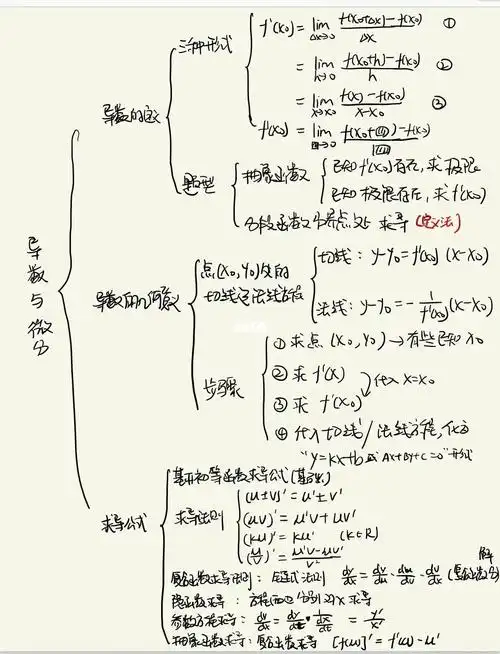 导数与微分
导数的定义
三种形式
f'(x₀) = lim Δx→0 (f(x₀+Δx) - f(x₀))/Δx ①
= lim h→0 (f(x₀+h) - f(x₀))/h ②
= lim x→x₀ (f(x) - f(x₀))/(x-x₀) ③
f'(x₀) = lim □→0 (f(x₀+□) - f(x₀))/□
题型
抽象函数
已知f'(x₀)存在,求极限
已知极限存在,求f'(x₀)
分段函数分界点处求导(定义法)
导数的几何意义
点(x₀,y₀)处的
切线与法线方程
切线:y-y₀=f'(x₀)(x-x₀)
法线:y-y₀=-1/f'(x₀)(x-x₀)
步骤
①求点(x₀,y₀)→有些已知x₀
②求f'(x)
代入x=x₀
③求f'(x₀)
④代入切线/法线方程,化为
"y=kx+b或Ax+By+C=0"形式
求导公式
基本初等函数求导公式(基础)
求导法则
(u±v)'=u'±v'
(uv)'=u'v+uv'
(ku)'=ku' (k∈R)
(u/v)'=(u'v-uv')/v²
复合函数求导法则:链式法则 dy/dx=dy/du·du/dv·dv/dx(复合函数分解)
隐函数求导:方程两边分别对x求导
参数方程求导:dy/dx=dy/dt·1/(dx/dt)=y'/x'
抽象函数求导:复合函数求导 [f(u)]'=f'(u)-u'